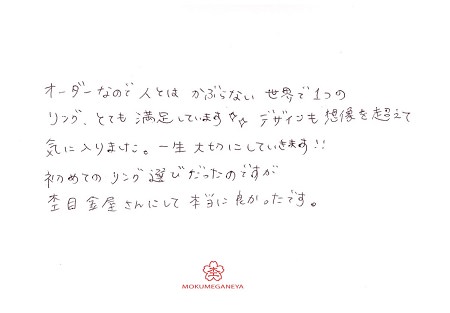 オーダーなので 人とは かぶらない 世界で1つの
リング、とても 満足しています☆☆ デザインも 想像を超えて
気に入りました。一生 大切にしていきます!!
初めての リング選びだったのですが
杢目金屋さんにして 本当に良かったです。
杢
MOKUMEGANEYA